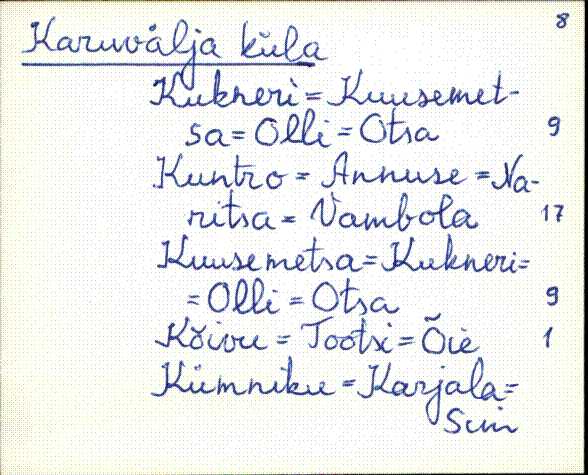 8
Karuvälja küla
Kukneri = Kuusemet-
sa = Olli = Otsa 9
Kuntro = Annuse = Na-
ritsa = Vambola 17
Kuusemetsa = Kukneri =
= Olli = Otsa 9
Kõivu = Tootsi = Õie 1
Kümniku = Karjala =
Suin